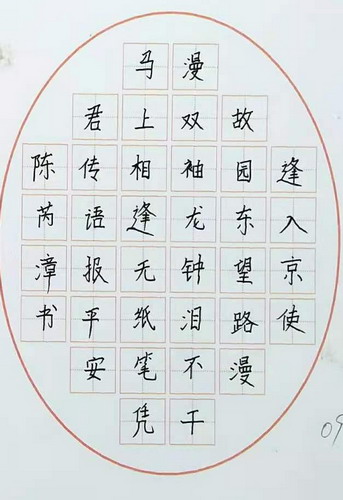 逢入京使
故园东望路漫
漫双袖龙钟泪不干
马上相逢无纸笔凭
君传语报平安
陈芮漳书